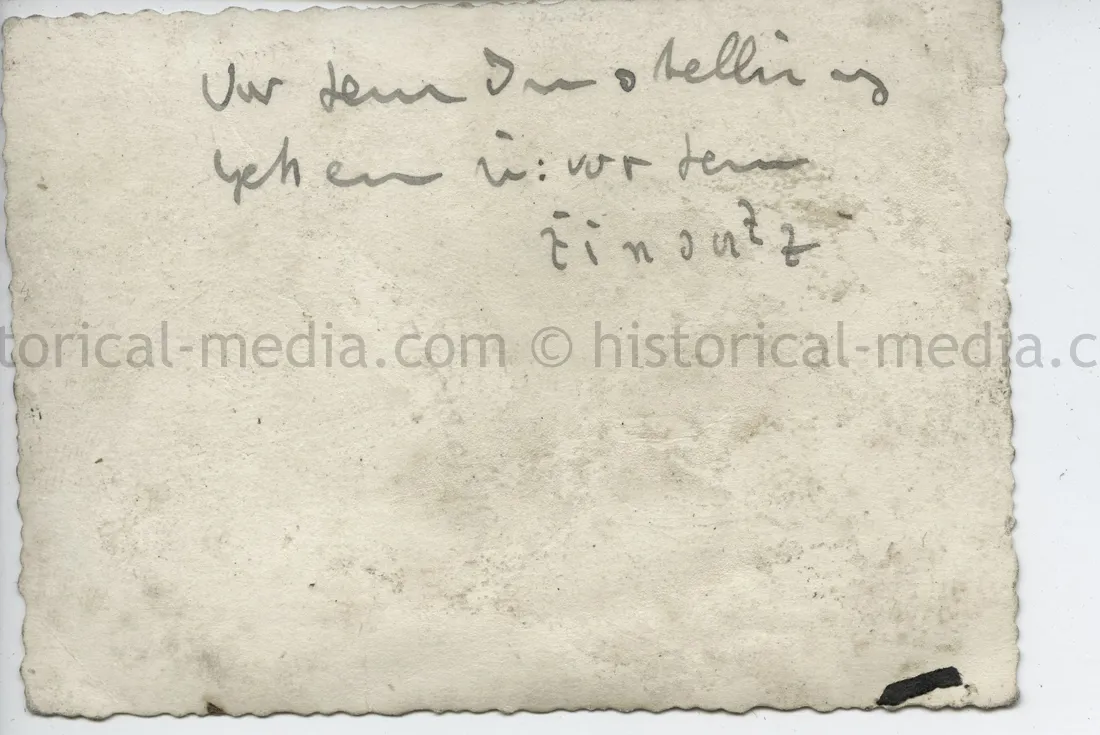 Vor dem In stellung
gehen u: vor dem
Einsatz
torical-media.com © historical-media.c